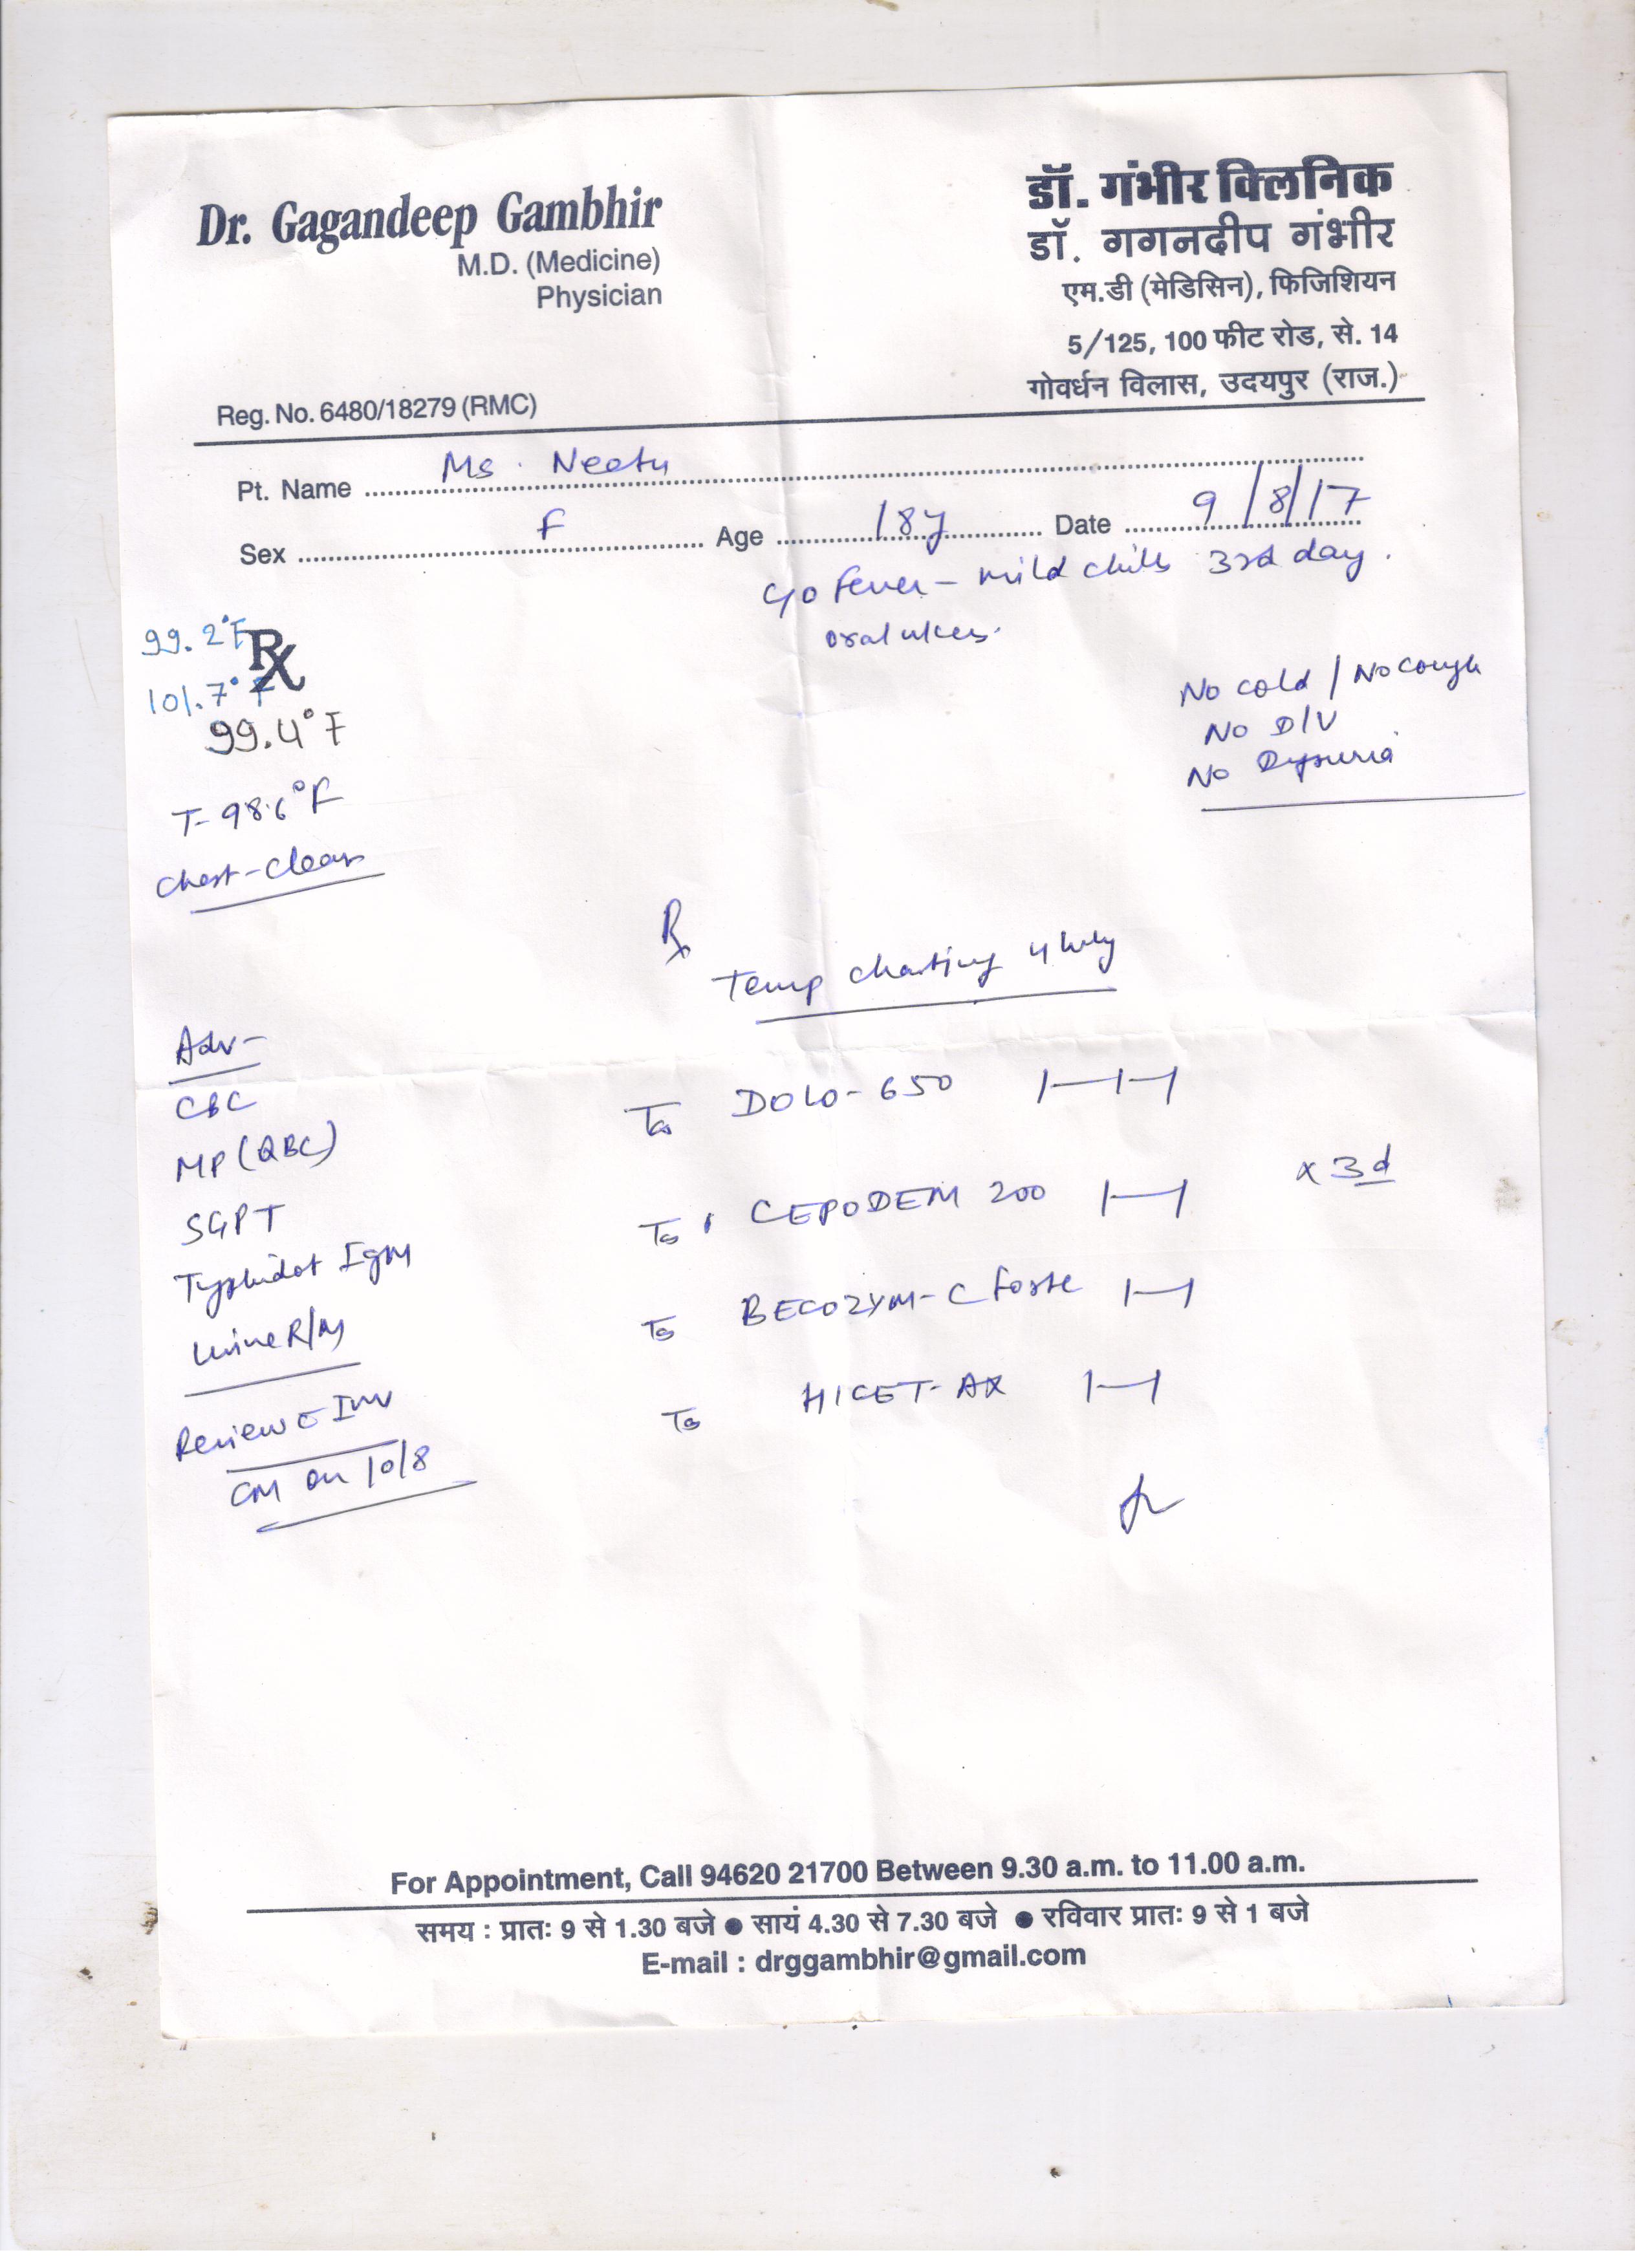 Dr. Gagandeep Gambhir
M.D. (Medicine)
Physician
Reg. No. 6480/18279 (RMC)
डॉ. गंभीर क्लिनिक
डॉ. गगनदीप गंभीर
एम.डी (मेडिसिन), फिजिशियन
5/125, 100 फीट रोड, से. 14
गोवर्धन विलास, उदयपुर (राज.)
Pt. Name Ms. Neetu
Sex F Age 18y Date 9/8/17
c/o fever - mild chills 3rd day.
oral ulcers.
No cold / No cough
No D/V
No Dysuria
99.2°F
Rx
101.7°F
99.4°F
T- 98.6°F
Chest - clear
Rx
Temp charting 4 hrly
Adv-
CBC
MP (QBC)
SGPT
Typhidot IgM
Urine R/M
Review c̄ Inv
CM on 10/8
DOLO-650 1—1—1
CEPODEM 200 1—1 x 3d
BECOZYM-C forte 1—1
HICET-AX 1—1
For Appointment, Call 94620 21700 Between 9.30 a.m. to 11.00 a.m.
समय : प्रातः 9 से 1.30 बजे ● सायं 4.30 से 7.30 बजे ● रविवार प्रातः 9 से 1 बजे
E-mail : drggambhir@gmail.com